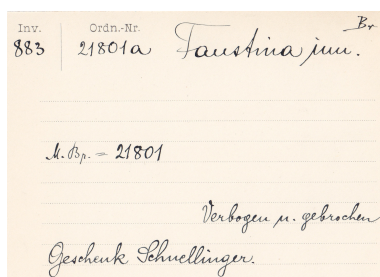 Br
Inv. Ordn.-Nr.
883 21801a Faustina iun.
M. Bp. = 21801
Verbogen u. gebrochen
Geschenk Schnellinger.